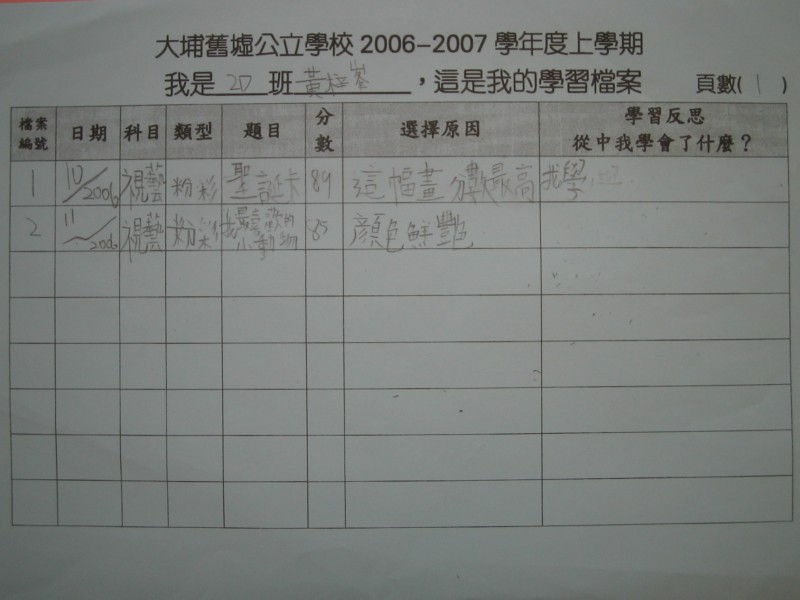 大埔舊墟公立學校 2006-2007 學年度上學期
我是 2D 班 黃 峯 ，這是我的學習檔案 頁數( 1 )
檔案編號 日期 科目 類型 題目 分數 選擇原因 學習反思 從中我學會了什麼？
1 10/2006 視藝 粉彩 聖誕卡 89 這幅畫分數最高 我學
2 11/2006 視藝 粉彩 我最喜歡的小動物 85 顏色鮮艷